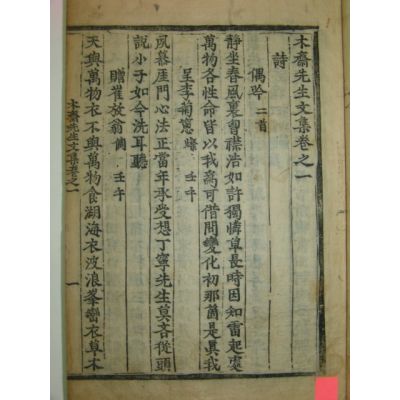 木齋先生文集卷之一
詩
偶吟 二首
靜坐春風裏胷襟浩如許獨憐草長時因知雷起處
萬物各性命皆以我爲可借問變化初那箇是眞我
呈李菊窓 壬午
夙慕厓門心法正當年承受想丁寧先生莫吝從頭
說小子如今洗耳聽
贈崔放翁 壬午
天與萬物衣不與萬物食湖海衣波浪峯巒衣草木
木齋先生文集卷之一
一